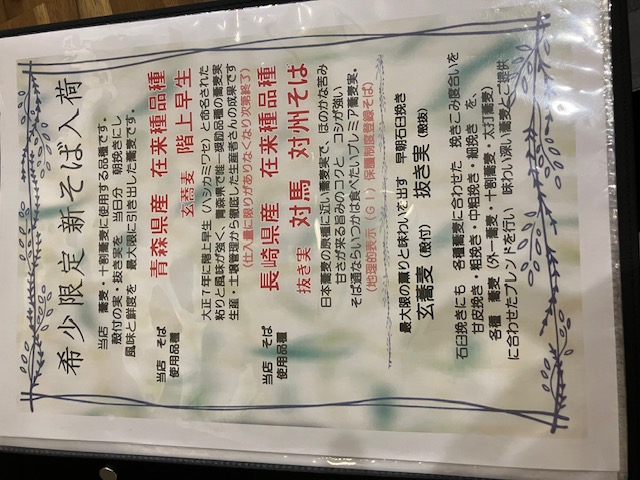 希少限定 新そば入荷
当店 蕎麦・十割蕎麦に使用する品種です。
殻付の実・抜き実を 当日分 朝挽きにし
風味と鮮度を 最大限に引き出した蕎麦です。
当店 そば
使用品種
青森県産 在来種品種
玄蕎麦 階上早生
大正7年に階上早生(ハシカミワセ)と命名された
粘りと風味が強く、青森県で唯一奨励品種の蕎麦実
生産・土壌管理から徹底した生産者さんの成果です
(仕入量に限りがありなくなり次第終了)
当店 そば
使用品種
長崎県産 在来種品種
抜き実 対馬 対州そば
日本蕎麦の原種に近い蕎麦実で、ほのかな苦み
甘さが来る旨みのコクと コシが強い
そば通ならいつかは食べたいプレミア蕎麦実。
(地理的表示(GI)保護制度登録そば)
最大限の薫りと味わいを出す 早朝石臼挽き
玄蕎麦(殻付) 抜き実(殻抜)
石臼挽きにも 各種蕎麦に合わせた 挽きこみ度合いを
甘皮挽き・粗挽き・中粗挽き・細挽き を、
各種 蕎麦(外一蕎麦・十割蕎麦・太打蕎麦)
に合わせたブレンドを行い 味わい深い蕎麦をご提供